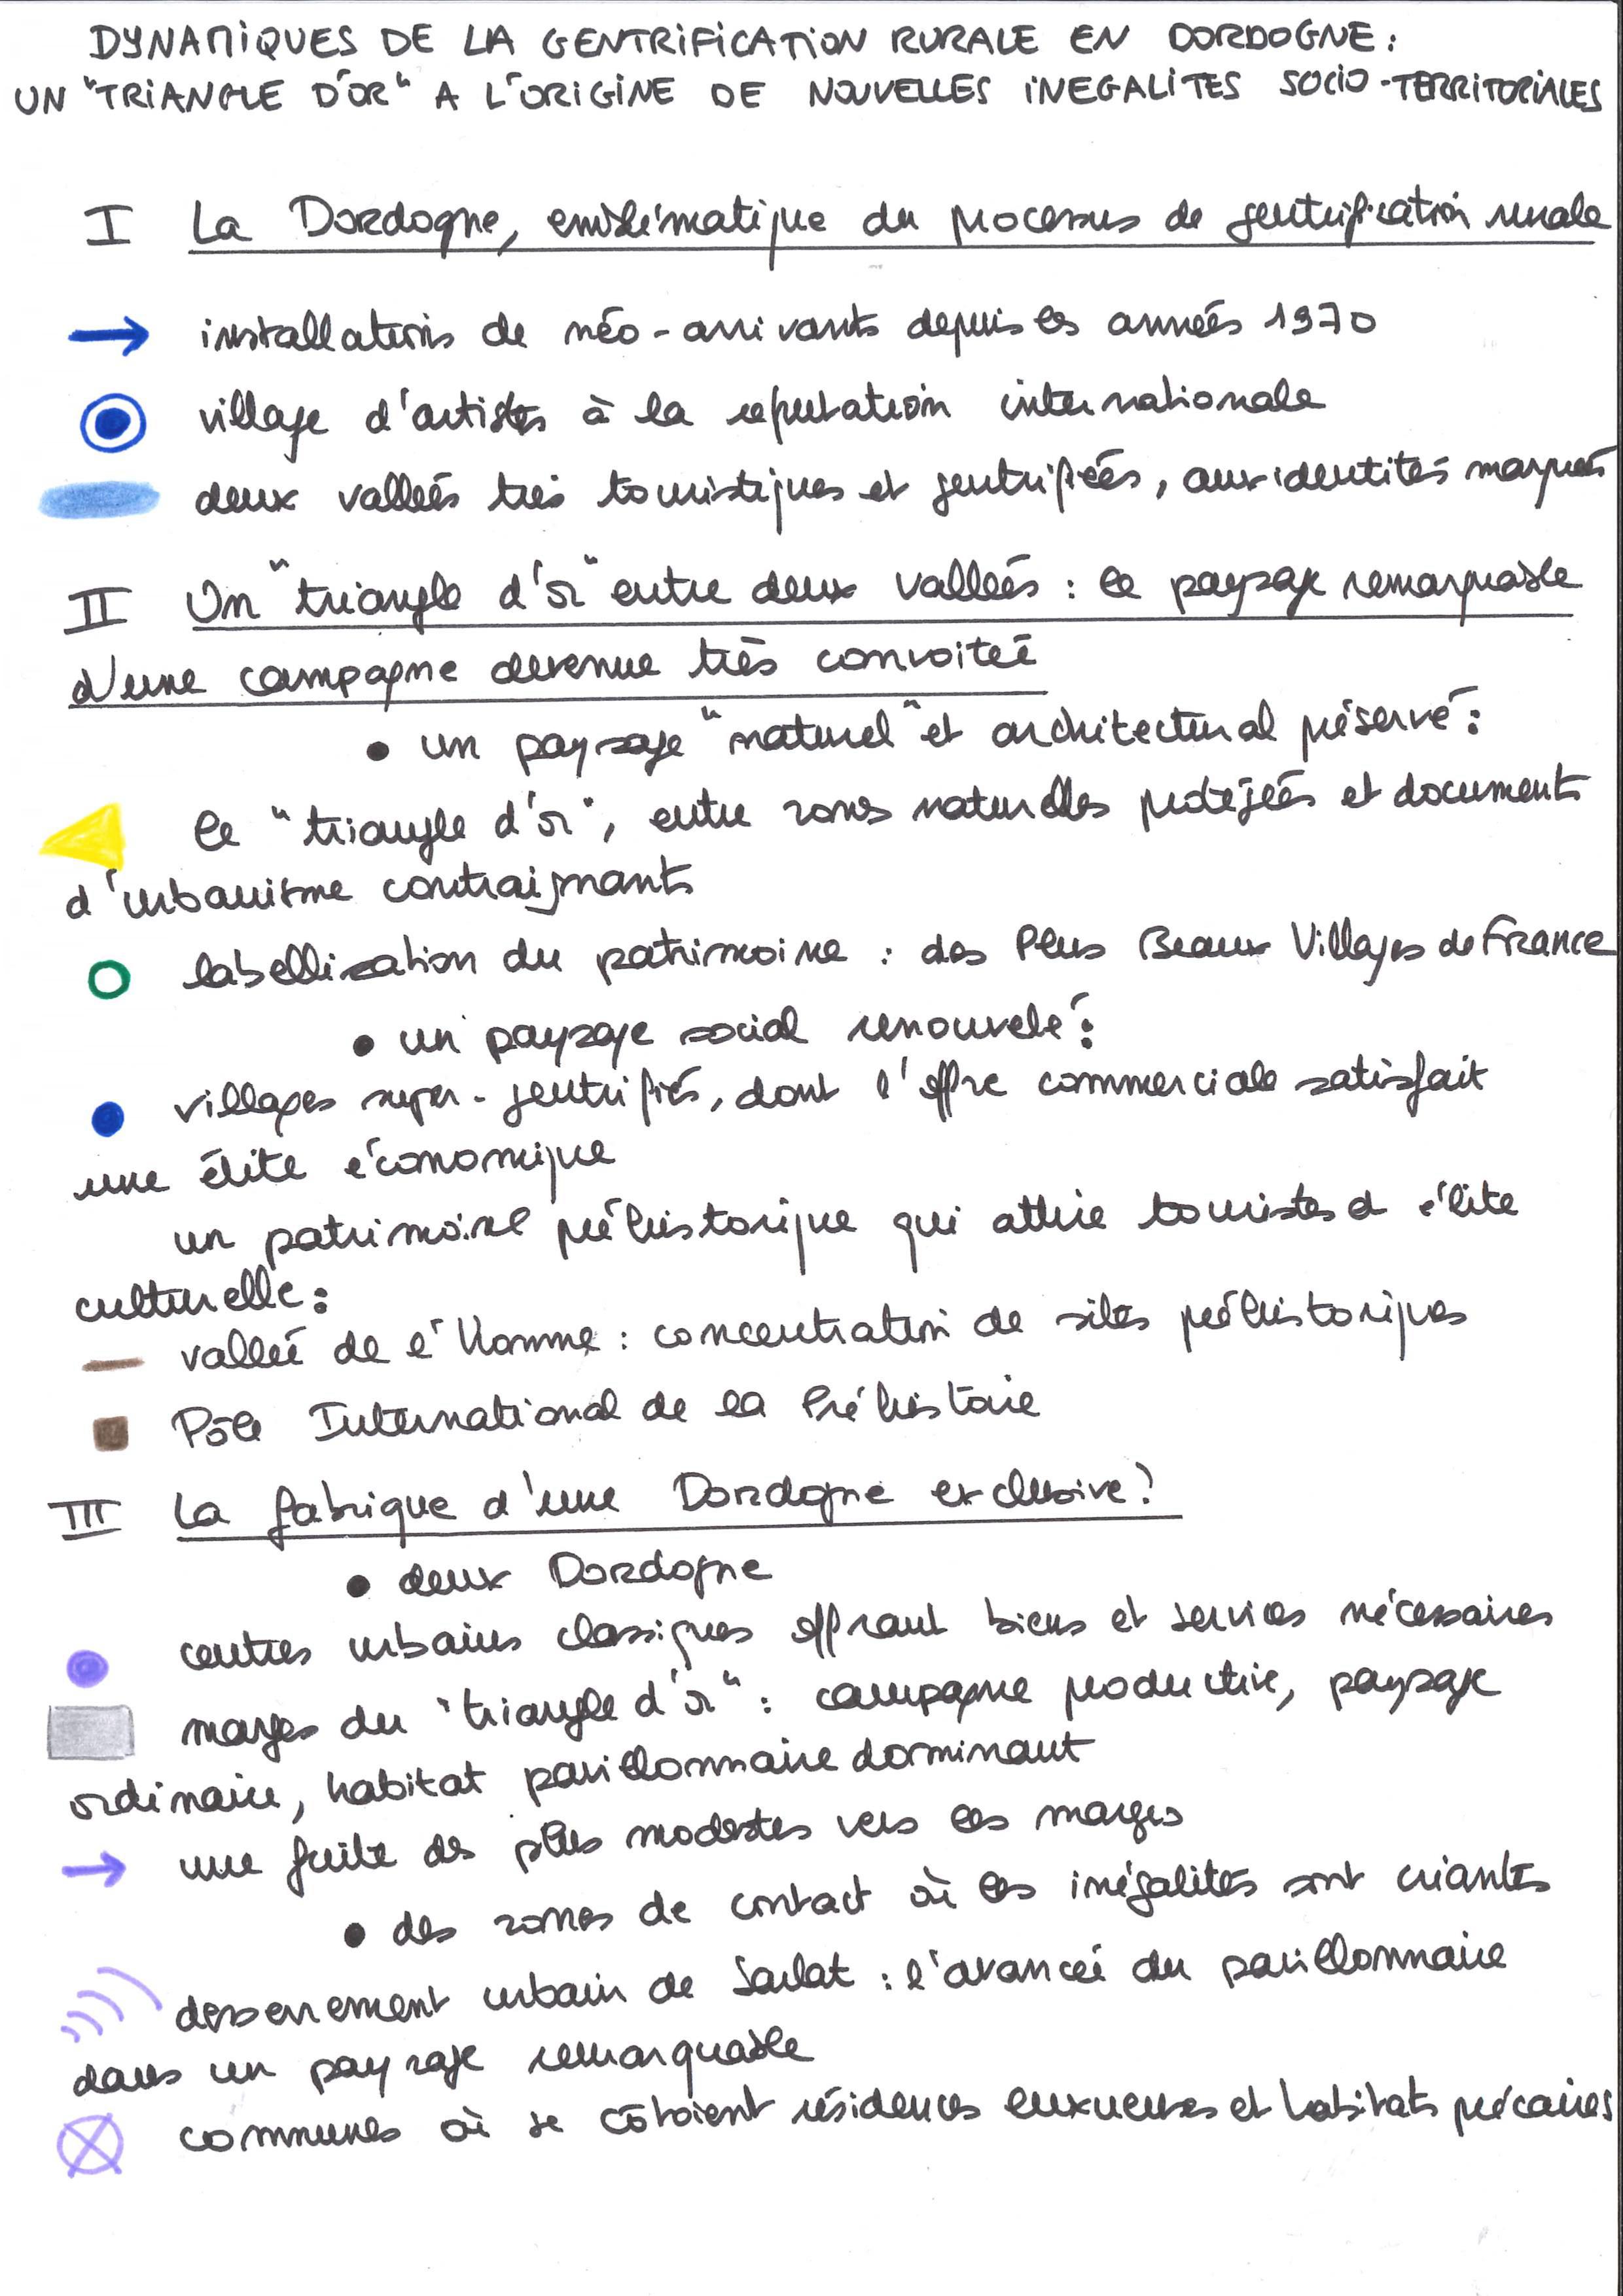 DYNAMIQUES DE LA GENTRIFICATION RURALE EN DORDOGNE :
UN "TRIANGLE D'OR" A L'ORIGINE DE NOUVELLES INEGALITES SOCIO-TERRITORIALES
I La Dordogne, emblématique du processus de gentrification rurale
installations de néo-arrivants depuis les années 1970
village d'artistes à la réputation internationale
deux vallées très touristiques et gentrifiées, aux identités marquées
II Un "triangle d'or" entre deux vallées : le paysage remarquable
d'une campagne devenue très convoitée
• un paysage "naturel" et architectural préservé :
le "triangle d'or", entre zones naturelles protégées et documents
d'urbanisme contraignants
labellisation du patrimoine : des Plus Beaux Villages de France
• un paysage social renouvelé :
villages super-gentrifiés, dont l'offre commerciale satisfait
une élite économique
un patrimoine préhistorique qui attire touristes et élite
culturelle :
vallée de l'Homme : concentration de sites préhistoriques
Pôle International de la Préhistoire
III La fabrique d'une Dordogne exclusive ?
• deux Dordogne
centres urbains classiques offrant biens et services nécessaires
marges du "triangle d'or" : campagne productive, paysage
ordinaire, habitat pavillonnaire dominant
une fuite des plus modestes vers les marges
• des zones de contact où les inégalités sont criantes
desserrement urbain de Sarlat : l'avancée du pavillonnaire
dans un paysage remarquable
communes où se côtoient résidences luxueuses et habitats précaires